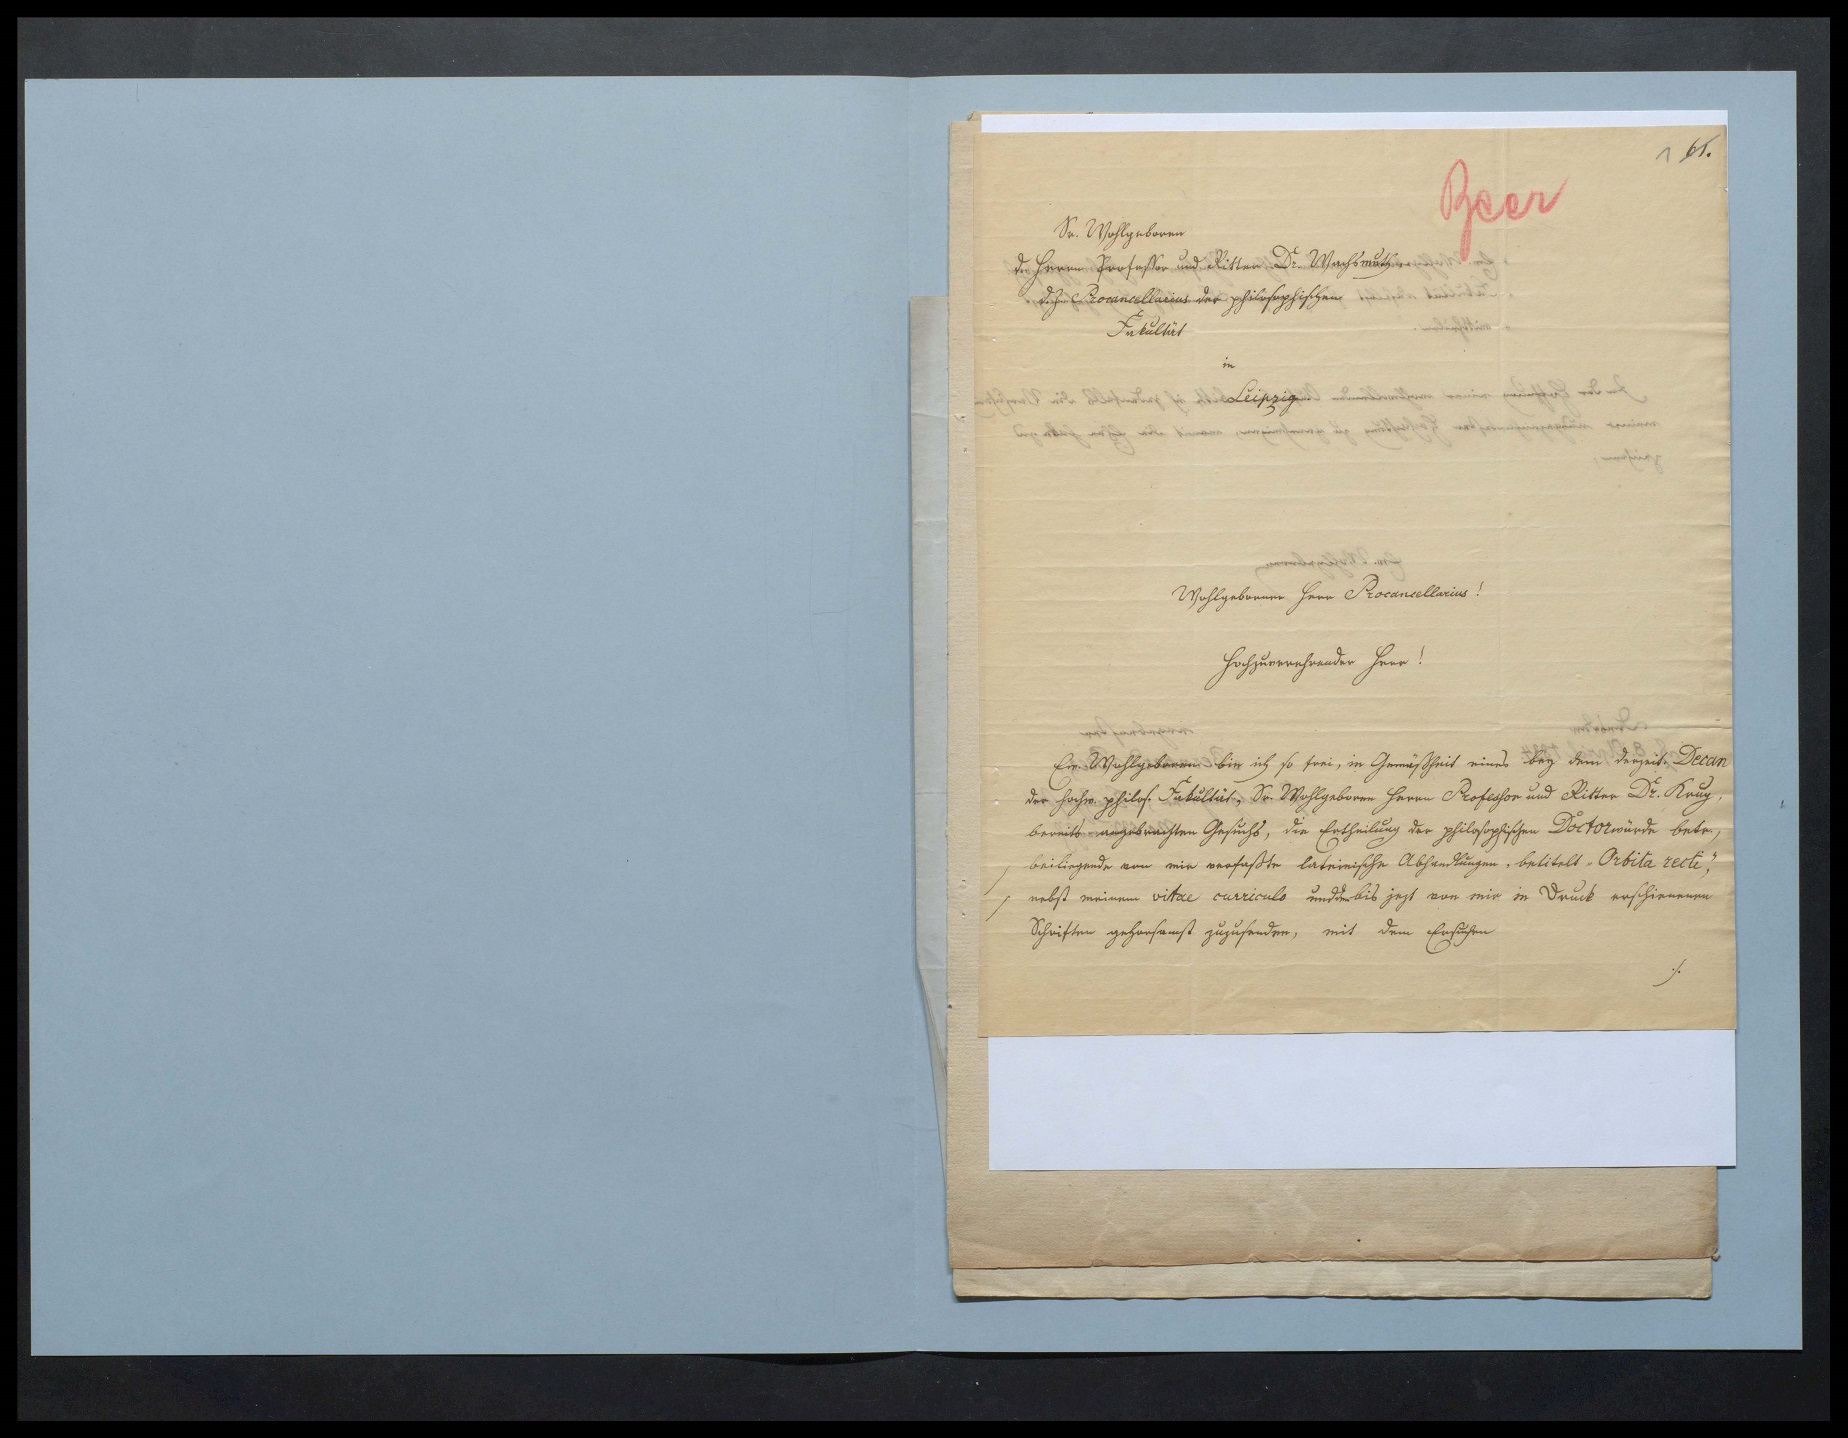 1 61.
Beer
Sr. Wohlgeboren
d. Herrn Professor und Ritter Dr. Wachsmuth
d. Z. Procancellarius der philosophischen
Fakultät
in
Leipzig
Wohlgeborner Herr Procancellarius!
Hochzuverehrender Herr!
Ew. Wohlgeboren bin ich so frei, in Gemäßheit eines bey dem derzeit. Decan
der hochw. philos. Fakultät, Sr. Wohlgeboren Herrn Professor und Ritter Dr. Krug,
bereits angebrachten Gesuchs, die Ertheilung der philosophischen Doctorwürde betr.,
beiliegende von mir verfaßte lateinische Abhandlungen, betitelt „Orbita recti",
nebst meinem vitae curriculo und bis jezt von mir in Druck erschienenen
Schriften gehorsamst zuzusenden, mit dem Ersuchen
./.